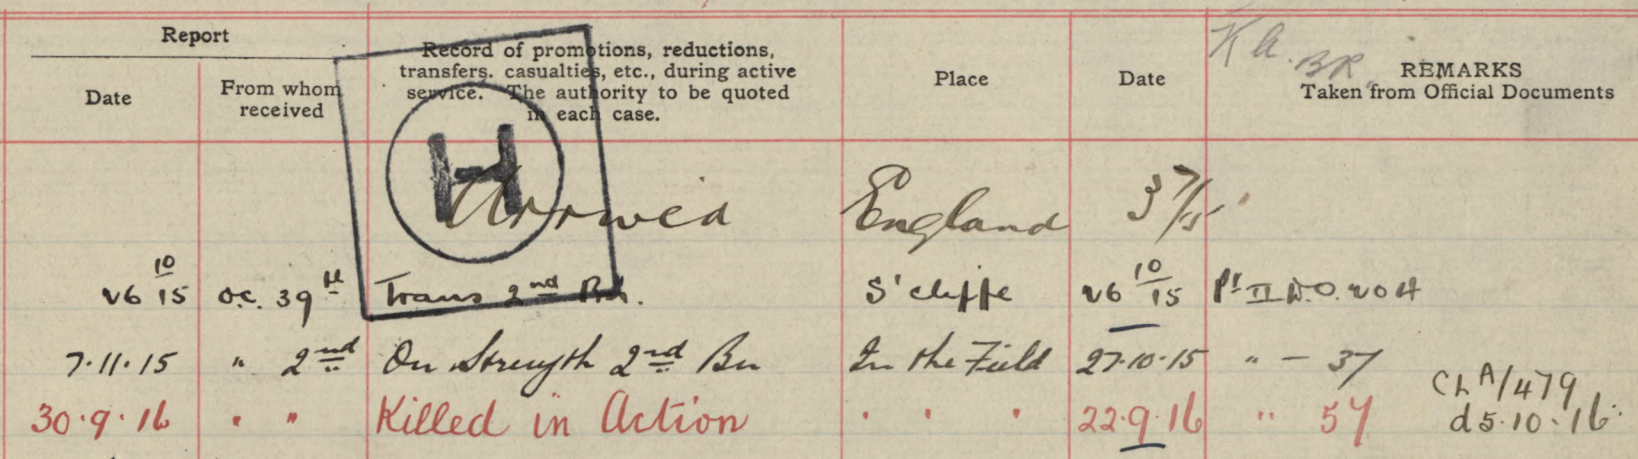 Report
Date
From whom received
Record of promotions, reductions, transfers. casualties, etc., during active service. The authority to be quoted in each case.
Place
Date
REMARKS
Taken from Official Documents
H
Arrived England 3 7/15
26 10/15 O.C. 39th Trans 2nd Bn. S'cliffe 26 10/15 Pt II D.O. 204
7.11.15 " 2nd On Strength 2nd Bn In the Field 27.10.15 " - 37
30.9.16 " " Killed in Action " " " 22.9.16 " 57 CL A/479
d 5.10.16